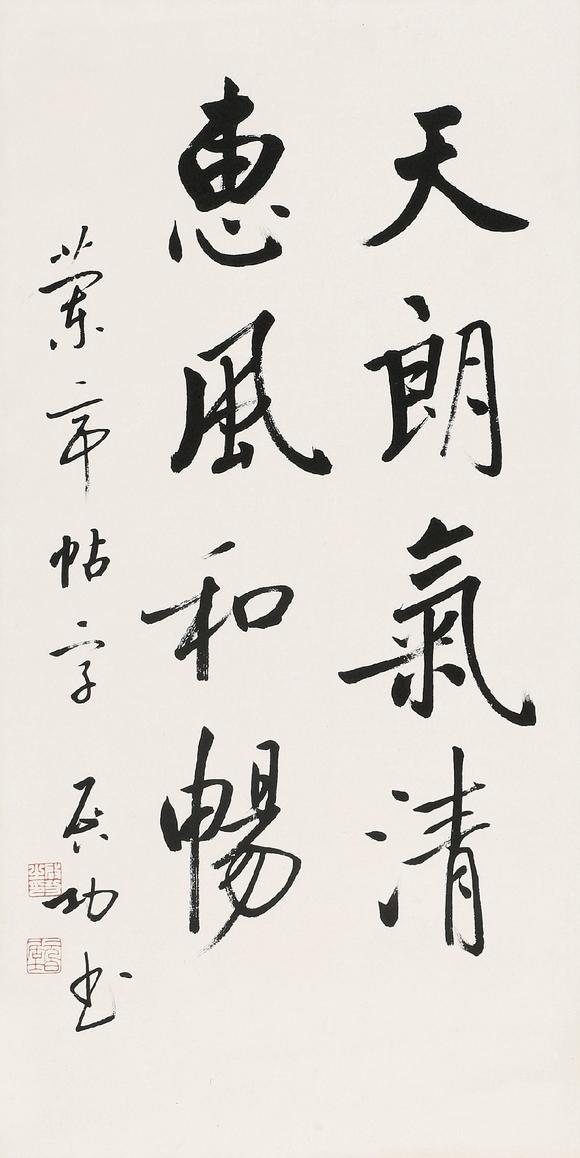 天朗氣清
惠風和暢
蘭亭帖字 啓功书